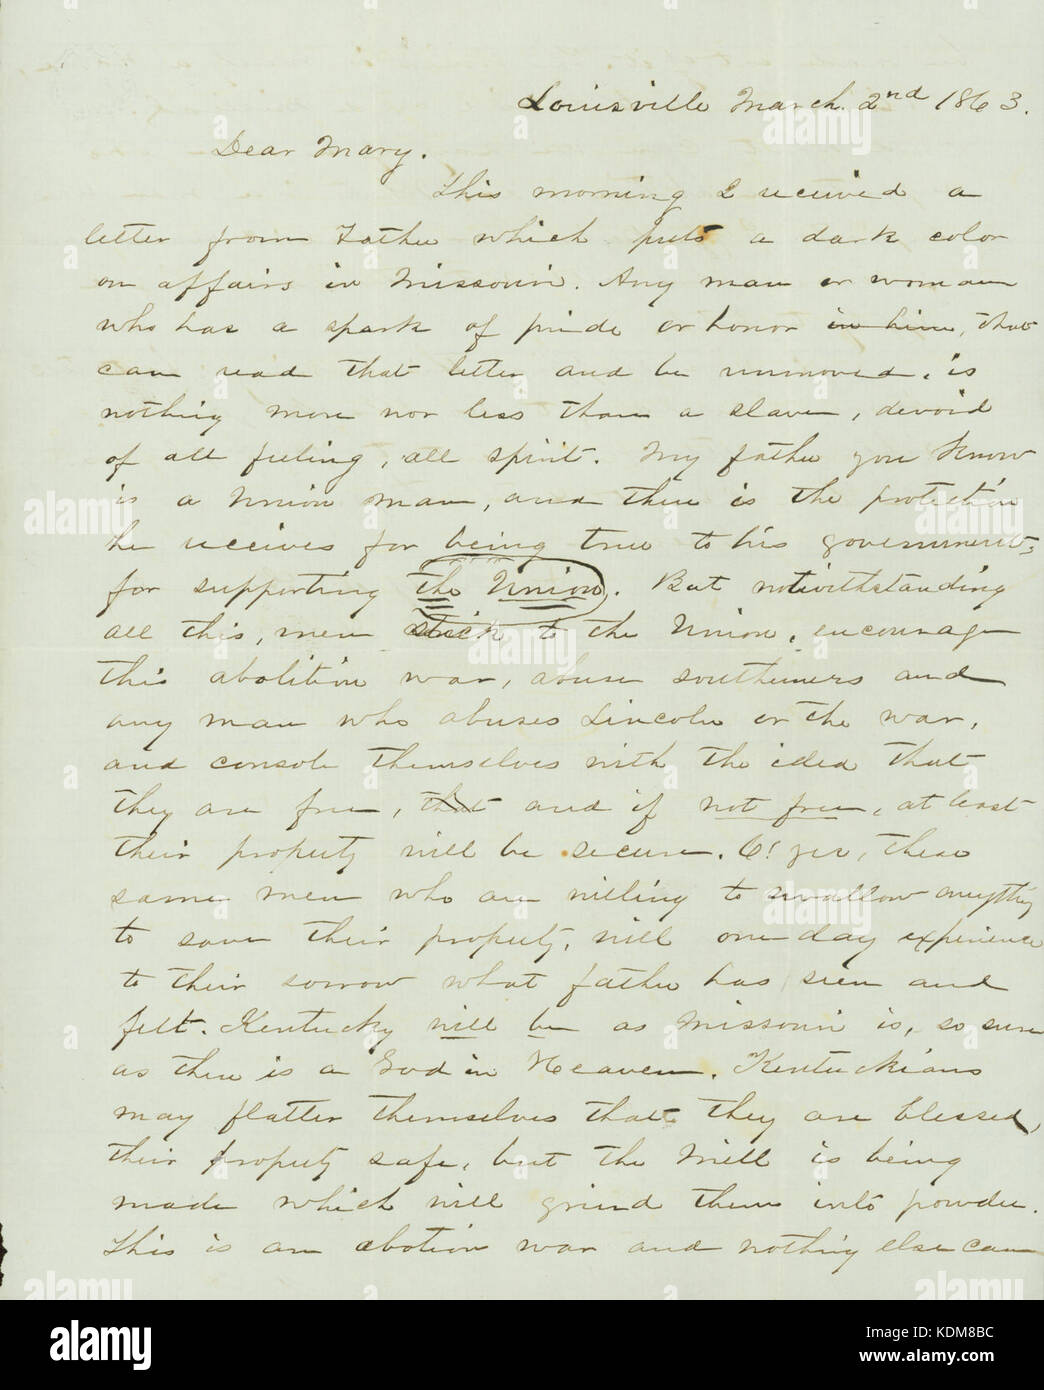 Louisville March. 2nd 1863.
Dear Mary.
This morning I received a
letter from Father which puts a dark color
on affairs in Missouri. Any man or woman
who has a spark of pride or honor in him, that
can read that letter and be unmoved, is
nothing more nor less than a slave, devoid
of all feeling, all spirit. My father you know
is a Union man, and there is the protection
he receives for being true to his government,
for supporting the Union. But notwithstanding
all this, men stick to the Union, encourage
this abolition war, abuse southerners and
any man who abuses Lincoln or the war,
and console themselves with the idea that
they are free, that and if not free, at least
their property will be secure. O! yes, these
same men who are willing to swallow anything
to save their property, will one day experience
to their sorrow what father has seen and
felt. Kentucky will be as Missouri is, so sure
as there is a God in Heaven. Kentuckians
may flatter themselves that they are blessed,
their property safe, but the Mill is being
made which will grind them into powder.
This is an abotion war and nothing else can
alamy
alamy
Image ID: KDM8BC
www.alamy.com